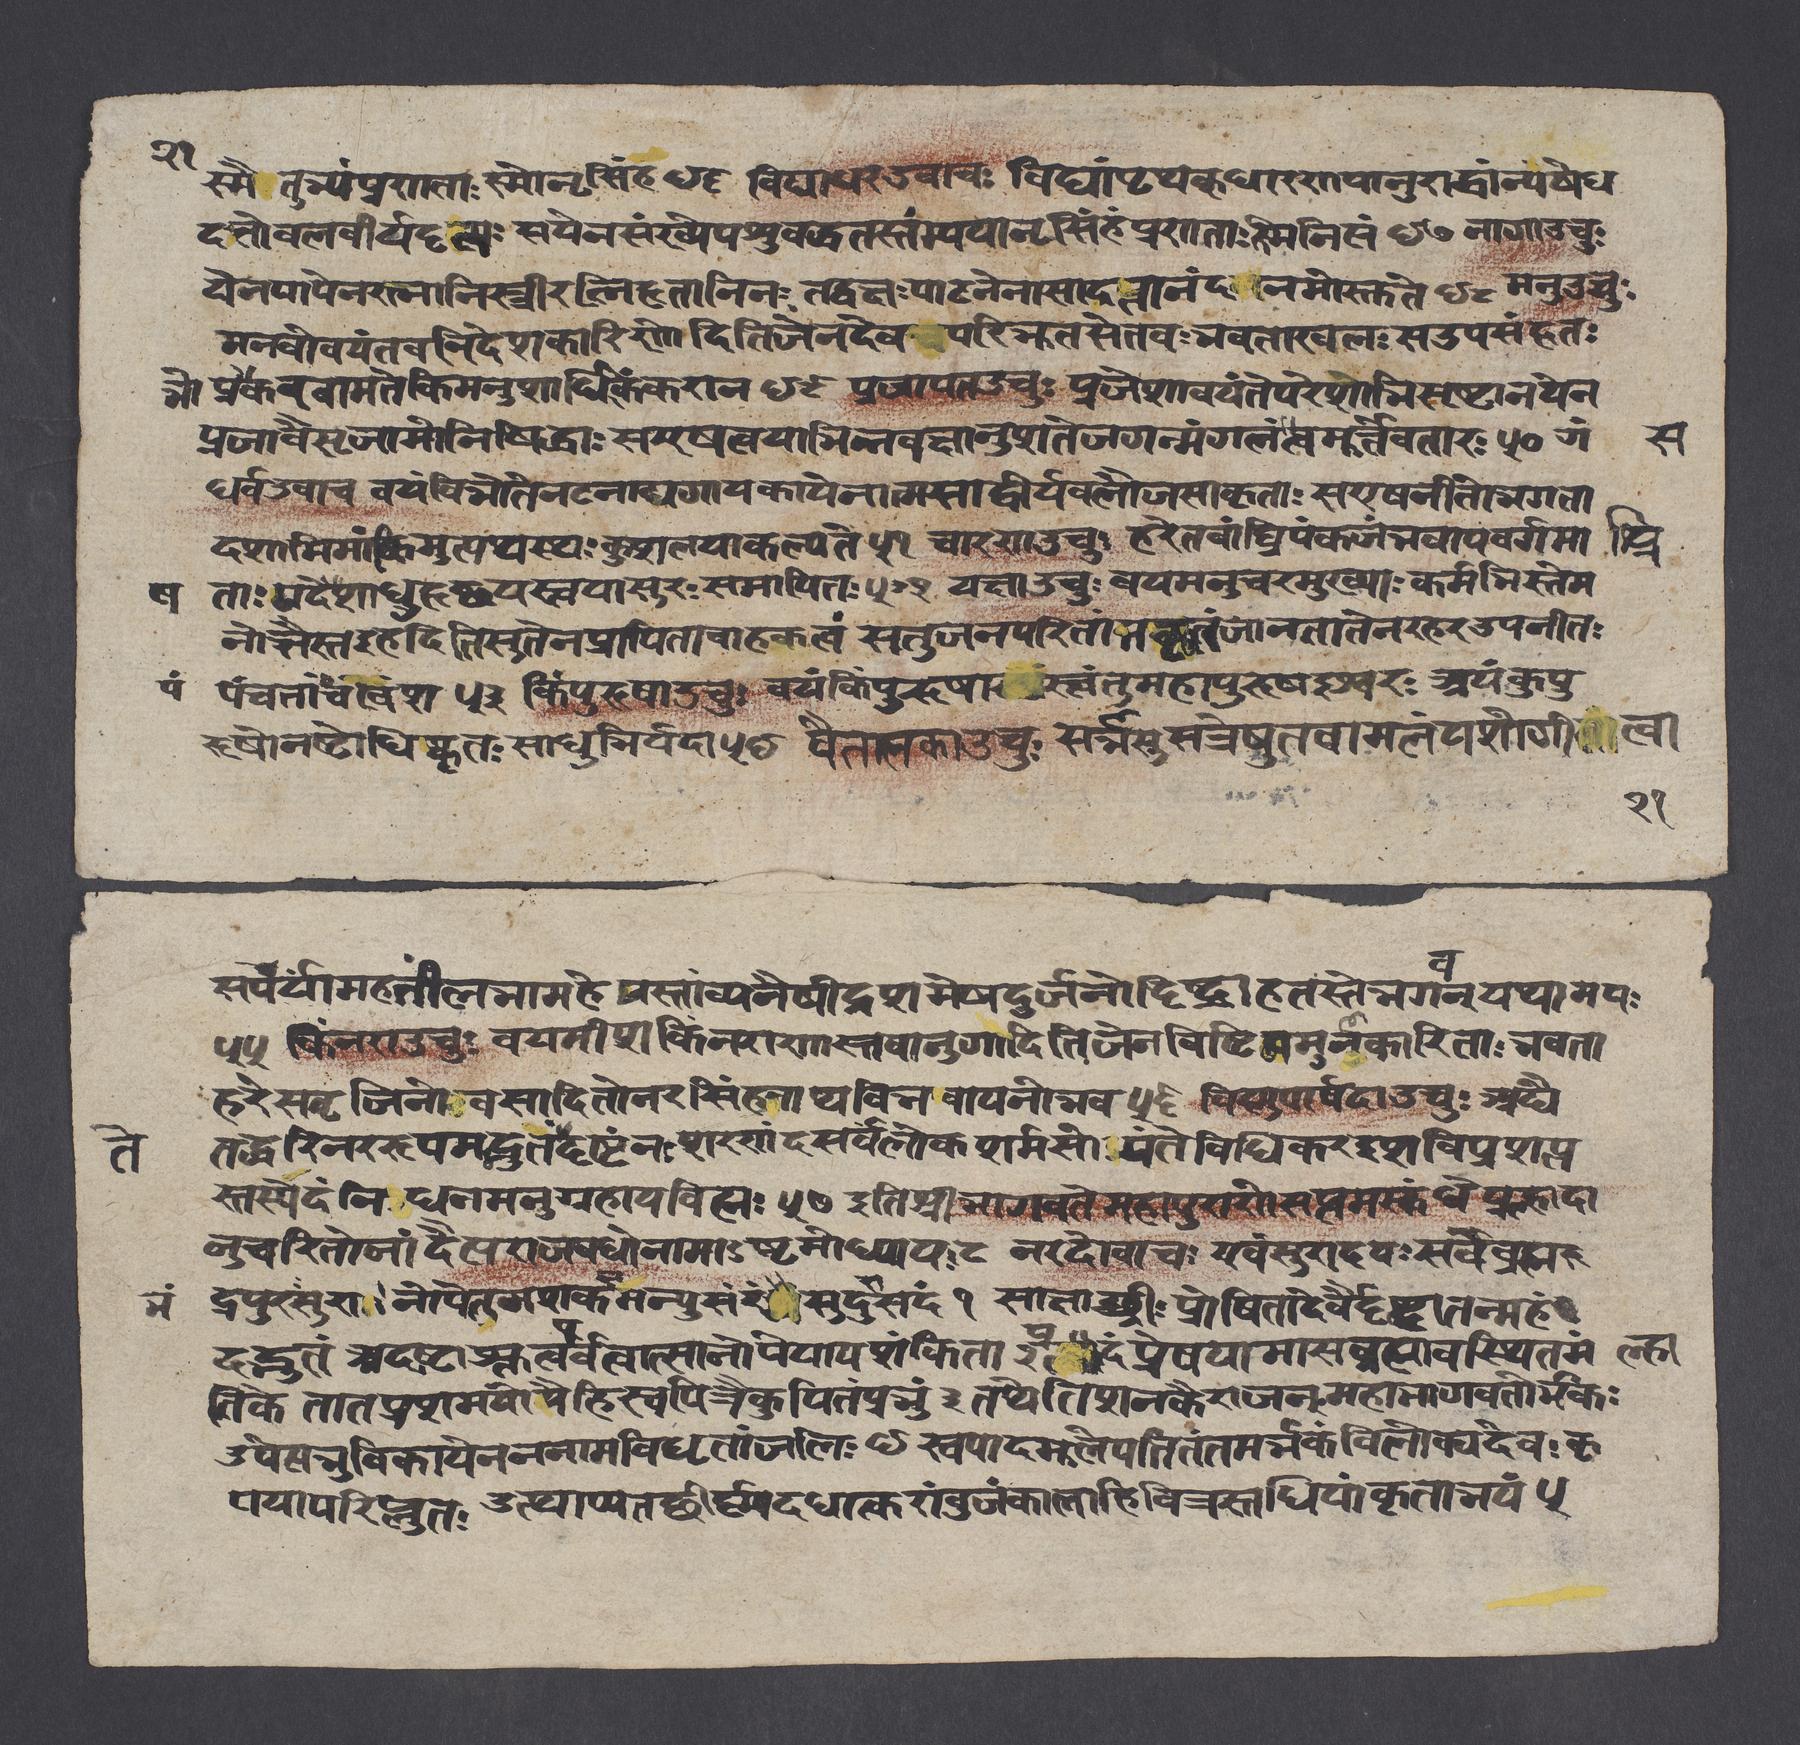 २१
स्मै तुभ्यंप्रणताः स्मोनृसिंह ४६ विद्याधरउवाचः विद्यांपृथक्धारणयानुराद्धांन्यषेध
दत्तोबलवीर्यदृप्तः सयेनसंख्येपशुवद्धतस्तंमाययानृसिंहंप्रणताःस्मनित्यं ४७ नागाउचुः
येनपापेनरत्नानिस्त्रीरत्निहृतानिनः तद्वक्षःपाटनेनासांदत्तानंद नमोस्तुते ४८ मनुउचुः
मनवोवयंतवनिदेशकारिणो दितिजेनदेव परिभूतसेतवःभवताखलः सउपसंहृतः
भो प्रकरवामतेकिमनुशाधिकिंकरान ४९ प्रजापतउचुः प्रजेशावयंतेपरेशाभिसृष्टानयेन
प्रजावैसृजामोनिषिद्धाः सएषत्वयाभिन्नवक्षानुशेतेजगन्मंगलंत्वमूर्तेवतारः ५० गं स
धर्वउवाच वयंविभोतेनटनाट्यगायकायेनात्मसाद्वीर्यबलौजसाकृताः सएषनीतोभगता
दशामिमांकिमुत्पथस्थः कुशलयाकल्पते ५१ चारणाउचुः हरेतवांघ्रिपंकजंभवापवर्गमा श्रि
ष ताः यदेशाधुहृच्छयस्त्वयासुरः समापितः ५२ यक्षाउचुः वयमनुचरमुख्याः कर्मभिस्तेम
नोज्ञैस्तइहदितिसुतेनप्रापितावाहकत्वं सतुजनपरितांपंकृतंजानतातेनरहरउपनीतः
पं पंचतांचविंश ५३ किंपुरुषाउचुः वयंकिंपुरुषा स्त्वंतुमहापुरुषईश्वरः अयंकुपु
रूषोनष्टोधिक्कृतः साधुभिर्यदा ५४ वैतालकाउचुः सभासुसत्रेषुतवामलंयशोगी त्वा
२१
सपर्यांमहतींलभामहे यस्तांव्यनैषीद्भृशमेषदुर्जनोदिष्ट्याहतस्तेभगवन्यथामयः
५५ किंनराउचुः वयमीशकिंनरागणास्तवानुगादितिजेनविष्टि ममुनकारिताः भवता
हरेसवृजिनो वसादितोनरसिंहनाथविभवायनोभव ५६ विष्णुपार्षदाउचुः अद्यै
ते तद्धरिनररूपमद्भुतंदृष्टंनःशरणंदसर्वलोकशर्मसो यंतेविधिकरइशविप्रशप्त
स्तस्येदंनि धनमनुग्रहायविद्मः ५७ इतिश्रीभागवतेमहापुराणेसप्तमस्कंधेप्रल्हादा
नुचरितोनांदैत्यराजवधोनामाऽष्टमोध्यायः ८ नरदोवाचः एवंसुरादयः सर्वेब्रह्मरु
भं द्रपुरःसुरा नोपैतुमशकमन्युसंरं सुदुसदं १ साक्षाच्छ्रीः प्रेषितादेवैर्दृष्ट्वातन्महं
दद्भुतं अदृष्टाश्रुतपूर्वत्वात्सानोपेयायशंकिता २ प्र दंप्रेषयामासब्रह्मावस्थितमं ल्हा
तिके तातप्रशमयोपेहिस्वपित्रेकुपितंप्रभुं ३ तथेतिशनकैराजन्महाभागवतोर्भकः
उपेत्यभुविकायेनननामविधृतांजलिः ४ स्वपादमूलेपतितंतमर्भकंविलोक्यदेवः कृ
पयापरिप्लुतः उत्थाप्यतच्छीर्ष्ण्यदधात्करांबुजंकालाहिवित्रस्तधियांकृताभयं ५